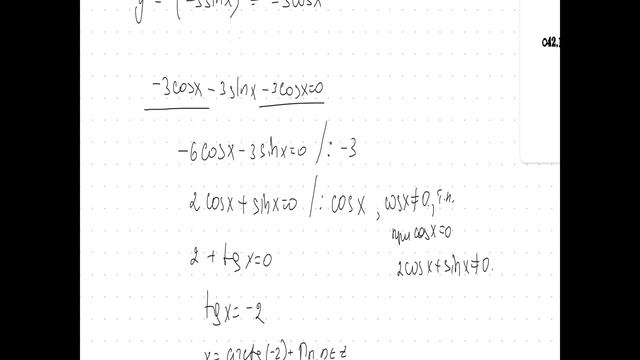 y'' = (-3sinx)' = -3cosx
-3cosx - 3sinx - 3cosx=0
-6cosx - 3sinx=0 /: -3
2cosx + sinx=0 /: cosx, cosx≠0, т.к.
при cosx=0
2cosx+sinx≠0.
2 + tgx=0
tgx= -2
x= arctg(-2)+ πn, n∈Z